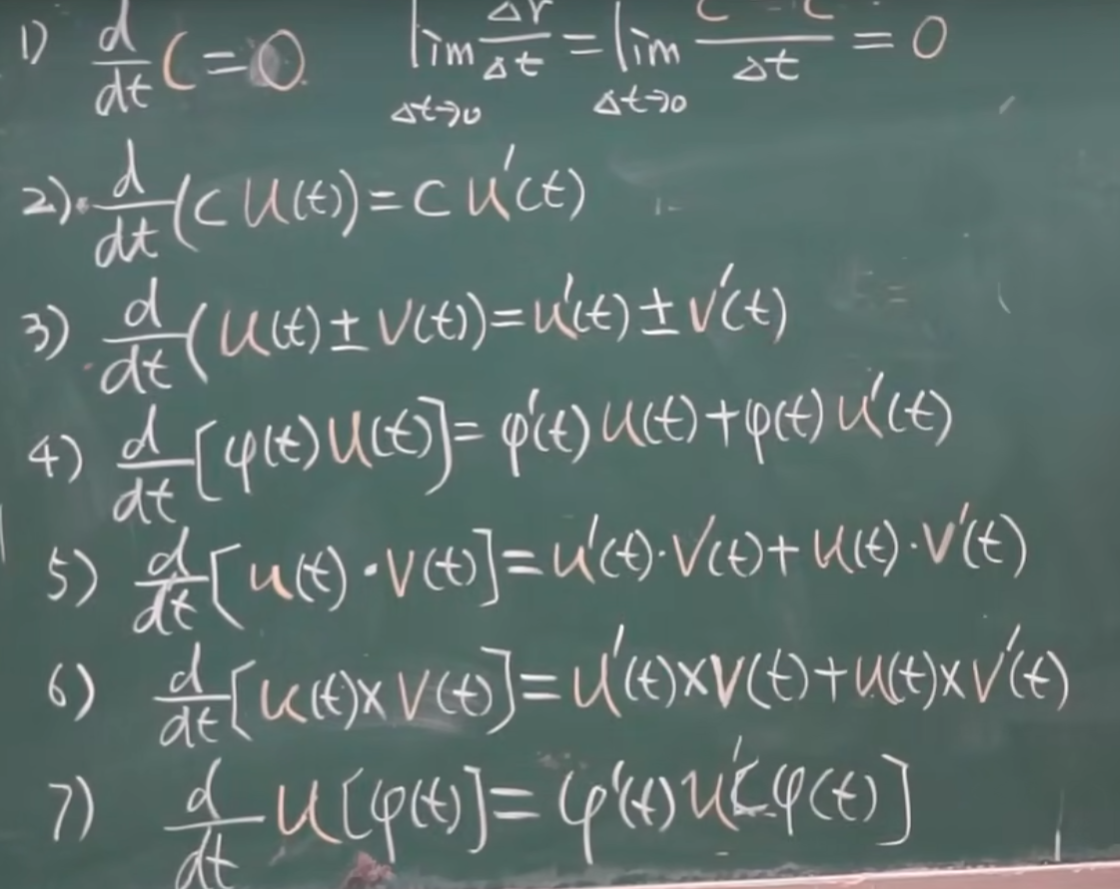 1) d/dt C = 0 lim Δt→0 Δr/Δt = lim Δt→0 C - C/Δt = 0
2) d/dt (C u(t)) = C u'(t)
3) d/dt (u(t) ± v(t)) = u'(t) ± v'(t)
4) d/dt [φ(t) u(t)] = φ'(t) u(t) + φ(t) u'(t)
5) d/dt [u(t) · v(t)] = u'(t) · v(t) + u(t) · v'(t)
6) d/dt [u(t) × v(t)] = u'(t) × v(t) + u(t) × v'(t)
7) d/dt u[φ(t)] = φ'(t) u'[φ(t)]